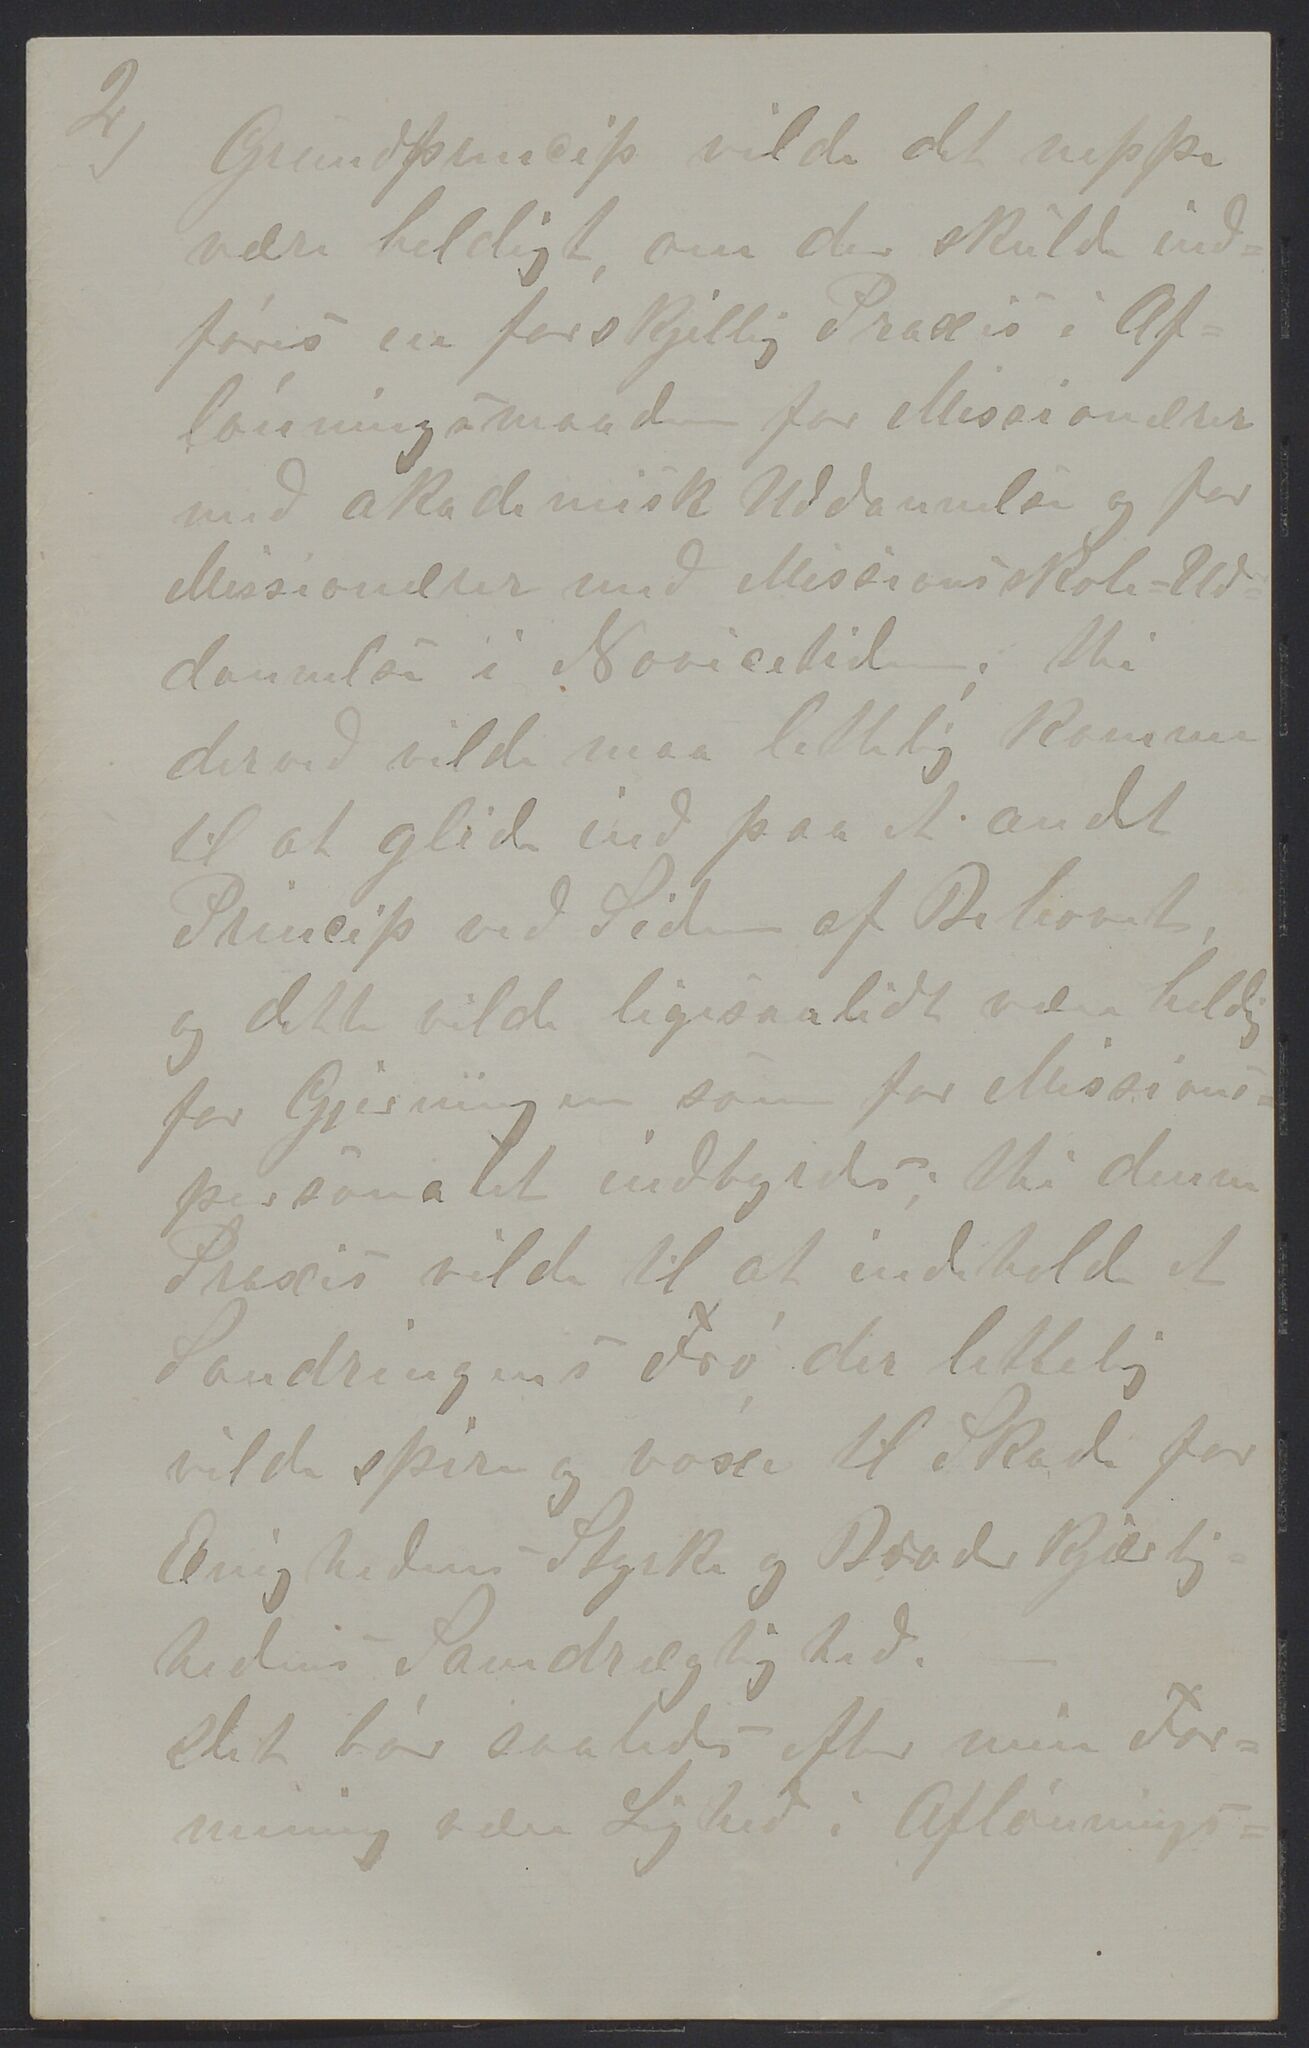 2,
Grundprincip vilde det neppe
være heldigt, om der skulde ind=
føres en forskjellig Praxis i Af=
lønningsmaaden for Missionærer
med akademisk Uddannelse og for
Missionærer med Missionsskole=Ud=
dannelse i Novicetiden; thi
derved vilde maa lettelig komme
til at glide ind paa et andet
Princip ved Siden af Behovet,
og dette vilde ligesaalidt være heldig
for Gjerningen som for Missions=
personalet indbyrdes; thi denne
Praxis vilde til at indeholde et
Søndringens Frø der lettelig
vilde spire og voxe til Skade for
Enighedens Styrke og Broderkjærlig=
hedens Samdrægtighed. —
Det bør saaledes efter min For=
mening være Lighed i Aflønnings=